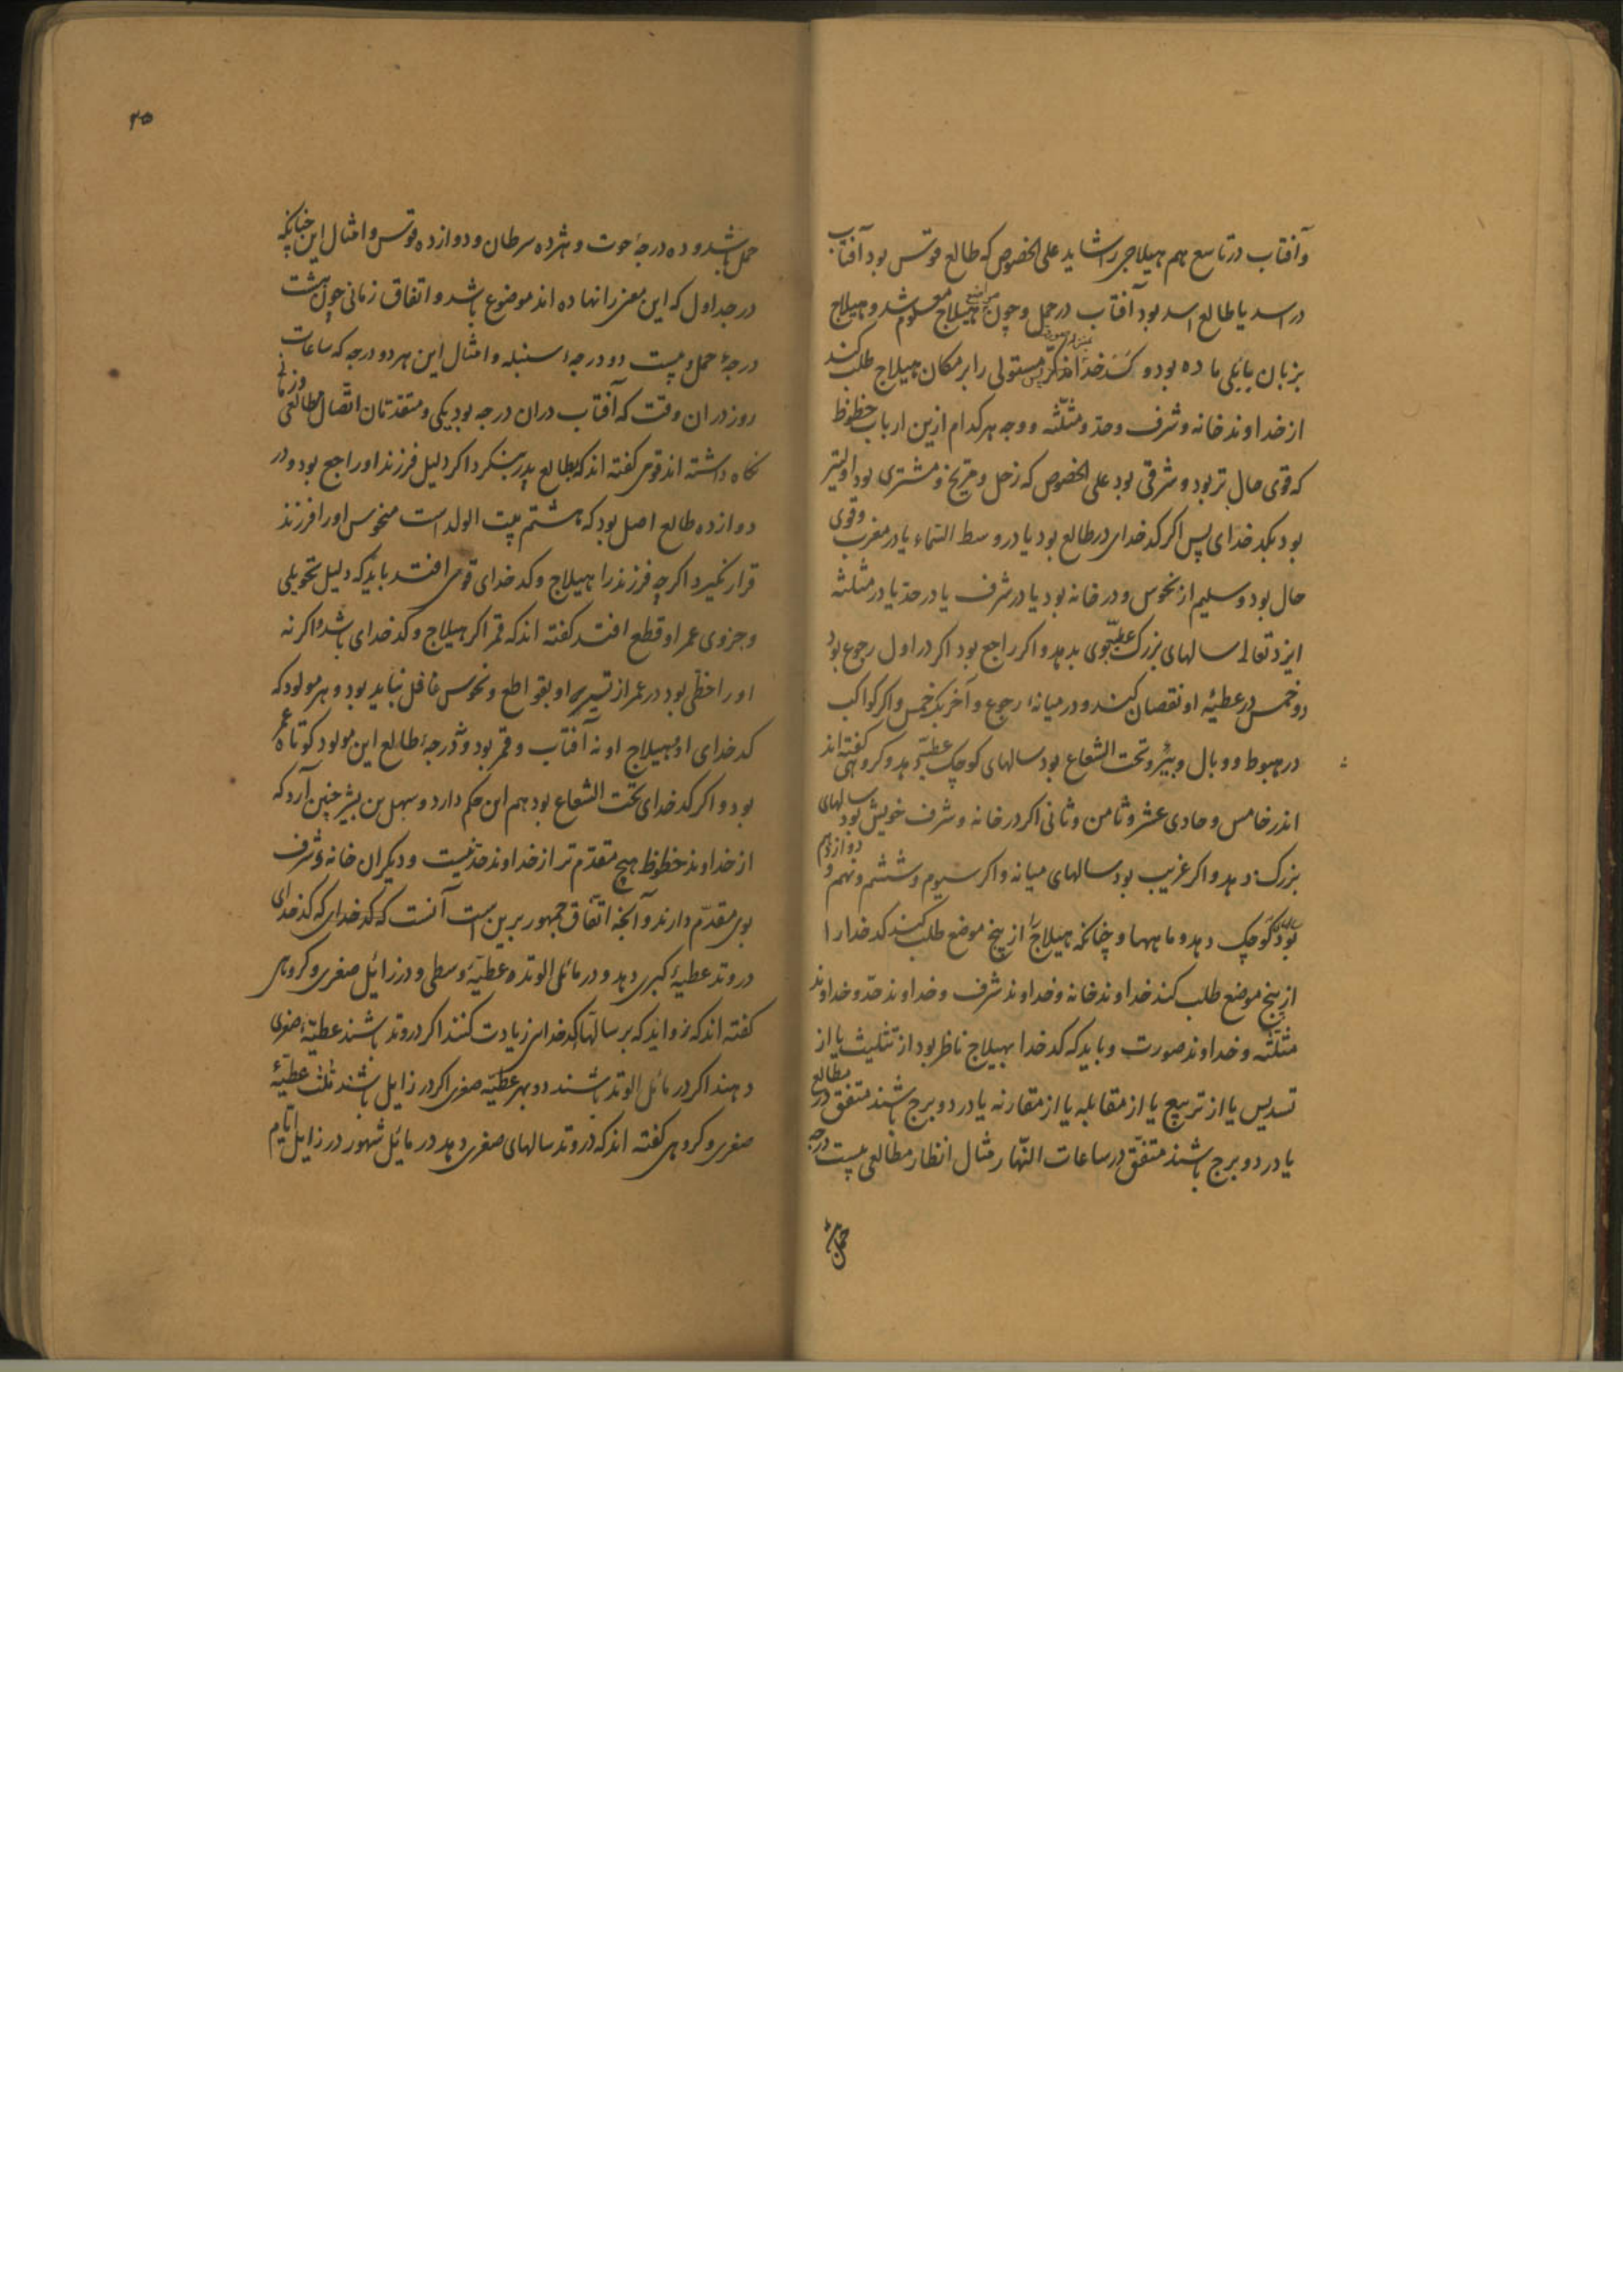 وآفتاب در تاسع هم هیلاجی را شاید علی الخصوص که طالع قوس بود آفتاب
در اسد یا طالع اسد بود آفتاب در حمل و چون مواضع هیلاج معلوم شد و هیلاج
بزبان بابلی ماده بود و کدخدا نر پس مستولی را بر مکان هیلاج طلب کند
از خداوند خانه و شرف وحد و مثلثه ووجه هر کدام ازین ارباب حظوظ
که قوی حال تر بود و شرقی بود علی الخصوص که زحل و مریخ و مشتری بود اولیتر
بود بکدخدای پس اکر کدخدای در طالع بود یا در وسط السماء یا در مغرب وقوی
حال بود و سلیم از نحوس و در خانه بود یا در شرف یا در حد یا در مثلثه
ایزد تعالی سالهای بزرک عطیه وی بدهد و اکر راجع بود اکر در اول رجوع بود
دو خمس در عطیهٔ او نقصان کنند و در میانهٔ رجوع و آخر یک خمس و اکر کواکب
در هبوط و وبال و بئر و تحت الشعاع بود سالهای کوچک عطیه دهد و کروهی کفته اند
اندر خامس و حادی عشر و ثامن و ثانی اکر در خانه و شرف خویش بود سالهای
بزرک دهد و اکر غریب بود سالهای میانه و اکر سیوم و ششم و نهم و دوازدهم
بود سالهای کوچک دهد و ماهها و چنانکه هیلاج را از پنج موضع طلب کنند کدخدا را
از پنج موضع طلب کنند خداوند خانه و خداوند شرف و خداوند حد و خداوند
مثلثه و خداوند صورت و باید که کدخدا بهیلاج ناظر بود از تثلیث یا از
تسدیس یا از تربیع یا از مقابله یا از مقارنه یا در دو برج باشند متفق در مطالع
یا در دو برج باشند متفق در ساعات النهار مثال انظار مطالعی بیست درجه
حمل
۲۵
حمل باشد و ده درجهٔ حوت و هژده سرطان و دوازده قوس و امثال این چنانکه
در جداول که این معنی را نهاده اند موضوع باشد و اتفاق زمانی چون هشت
درجهٔ حمل و بیست دو درجهٔ سنبله و امثال این هر دو درجه که ساعات
روز در ان وقت که آفتاب در ان درجه بود یکی و متقدمان اتصال مطالعی و زمانی
نکاه داشته اند قومی کفته اند که بطالع پدر بنکرد اکر دلیل فرزند او راجع بود و در
دوازده طالع اصل بود که هشتم بیت الولد است منحوس او را فرزند
قرار نکیرد اکرچه فرزند را هیلاج و کدخدای قوی افتد باید که دلیل تحویلی
و جزوی عمر او قطع افتد کفته اند که قمر اکر هیلاج و کدخدای باشد و اکر نه
او را حظی بود در عمر از تسییر او بقواطع و نحوس غافل نباید بود و هر مولود که
کدخدای او و هیلاج او نه آفتاب و قمر بود و نه درجهٔ طالع این مولود کوتاه عمر
بود و اکر کدخدای تحت الشعاع بود هم این حکم دارد و سهل بن بشر چنین آرد که
از خداوند حظوظ هیچ مقدم تر از خداوند حد نیست و دیکران خانه و شرف
بوی مقدم دارند و آنچه اتفاق جمهور برین است آنست که کدخدای که کدخدای
در وتد عطیهٔ کبری دهد و در مائلی الوتد عطیهٔ وسطی و در زائل صغری و کروهی
کفته اند که زواید که بر سالها کدخدای زیادت کنند اکر در وتد باشند عطیهٔ صغری
دهند اکر در مائل الوتد باشند دو بهر عطیه صغری اکر در زایل باشند ثلث عطیهٔ
صغری و کروهی کفته اند که در وتد سالهای صغری دهد در مائل شهور در زایل ایام